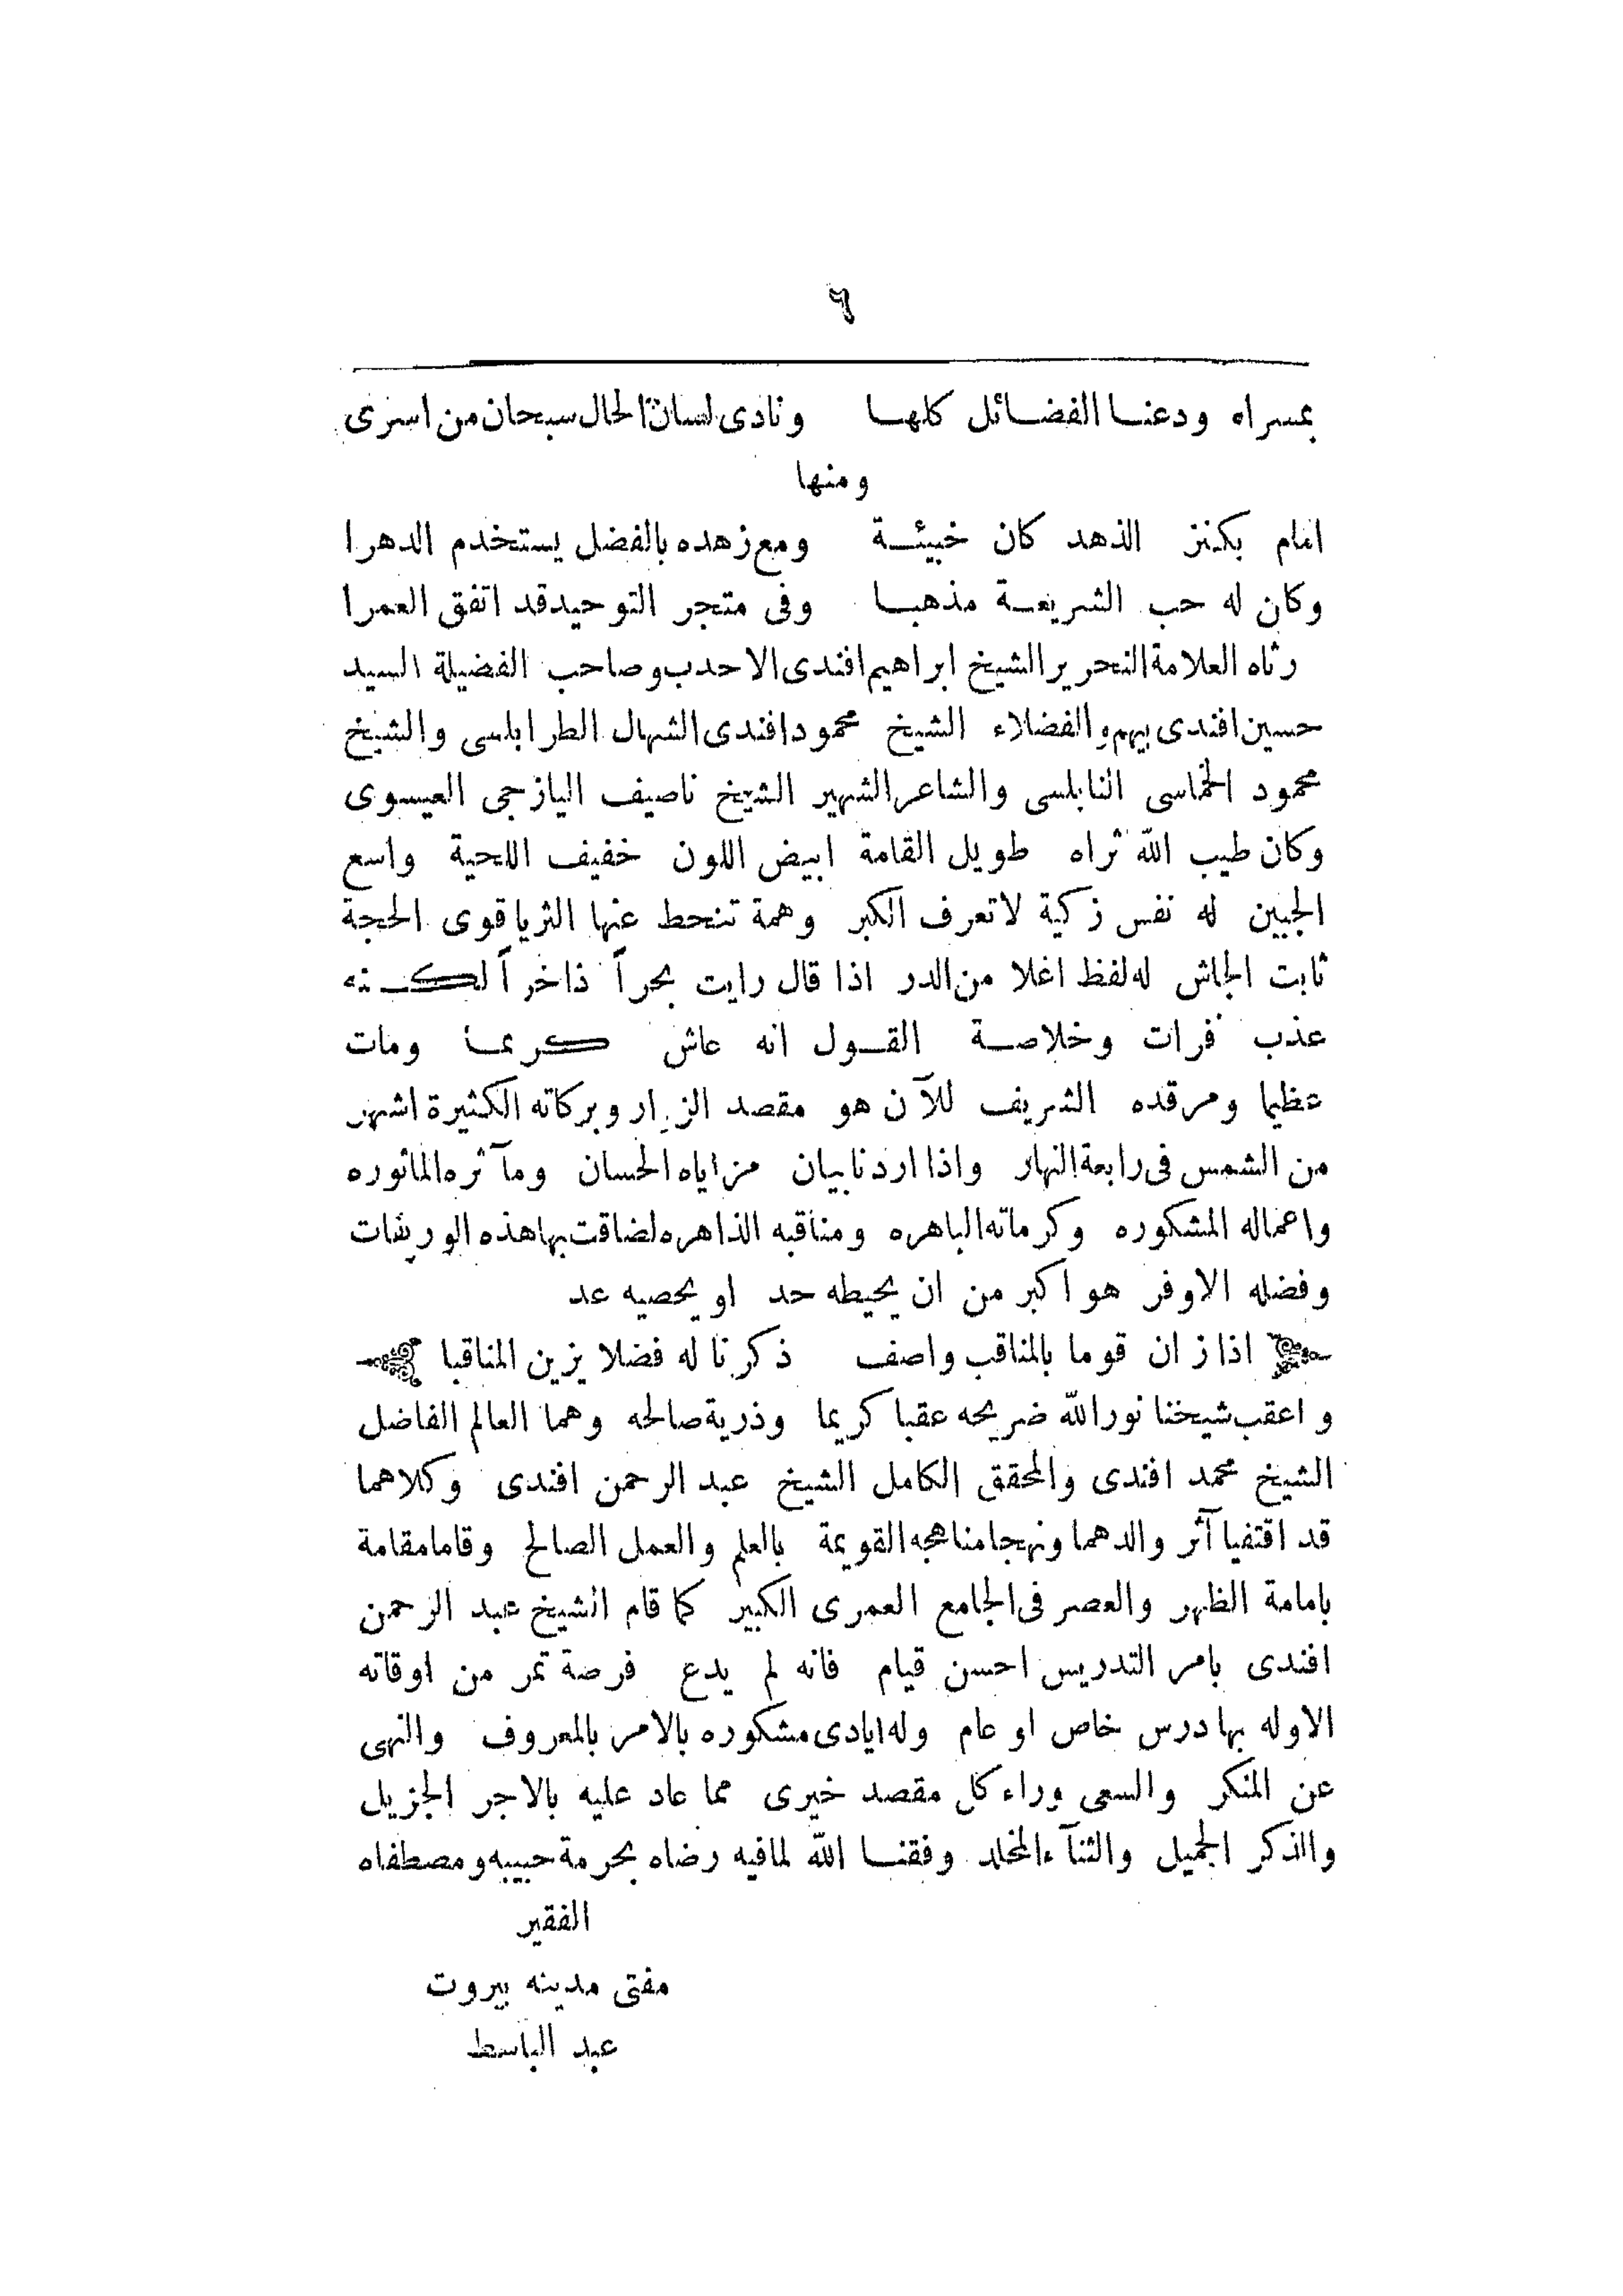 ٦
بمسراه ودعنا الفضائل كلها ونادى لسان الحال سبحان من اسرى
ومنها
امام بكنز الذهد كان خبيئة ومع زهده بالفضل يستخدم الدهرا
وكان له حب الشريعة مذهبا وفى متجر التوحيد قد اتفق العمرا
رثاه العلامة النحرير الشيخ ابراهيم افندى الاحدب وصاحب الفضيلة السيد
حسين افندى بيهم والفضلاء الشيخ محمود افندى الشهال الطرابلسى والشيخ
محمود الخماسى النابلسى والشاعر الشهير الشيخ ناصيف اليازجى العيسوى
وكان طيب الله ثراه طويل القامة ابيض اللون خفيف اللحية واسع
الجبين له نفس زكية لا تعرف الكبر وهمة تنحط عنها الثريا قوى الحجة
ثابت الجاش له لفظ اغلا من الدر اذا قال رايت بحراً ذاخراً لكنه
عذب فرات وخلاصة القول انه عاش كريما ومات
عظيما ومرقده الشريف للآن هو مقصد الزوار وبركاته الكثيرة اشهر
من الشمس فى رابعة النهار واذا اردنا بيان مزاياه الحسان ومآثره الماثوره
واعماله المشكوره وكرماته الباهره ومناقبه الذاهره لضاقت بها هذه الوريقات
وفضله الاوفر هو اكبر من ان يحيطه حد او يحصيه عد
اذا زان قوما بالمناقب واصف ذكرنا له فضلا يزين المناقبا
واعقب شيخنا نور الله ضريحه عقبا كريما وذرية صالحه وهما العالم الفاضل
الشيخ محمد افندى والمحقق الكامل الشيخ عبد الرحمن افندى وكلاهما
قد اقتفيا آثر والدهما ونهجا مناهجه القويمة بالعلم والعمل الصالح وقاما مقامة
بامامة الظهر والعصر فى الجامع العمرى الكبير كما قام الشيخ عبد الرحمن
افندى بامر التدريس احسن قيام فانه لم يدع فرصة تمر من اوقاته
الاوله بها درس خاص او عام وله ايادى مشكوره بالامر بالمعروف والنهى
عن المنكر والسعى وراء كل مقصد خيرى مما عاد عليه بالاجر الجزيل
والذكر الجميل والثنآء المخلد وفقنا الله لمافيه رضاه بحرمة حبيبه ومصطفاه
الفقير
مفتى مدينه بيروت
عبد الباسط